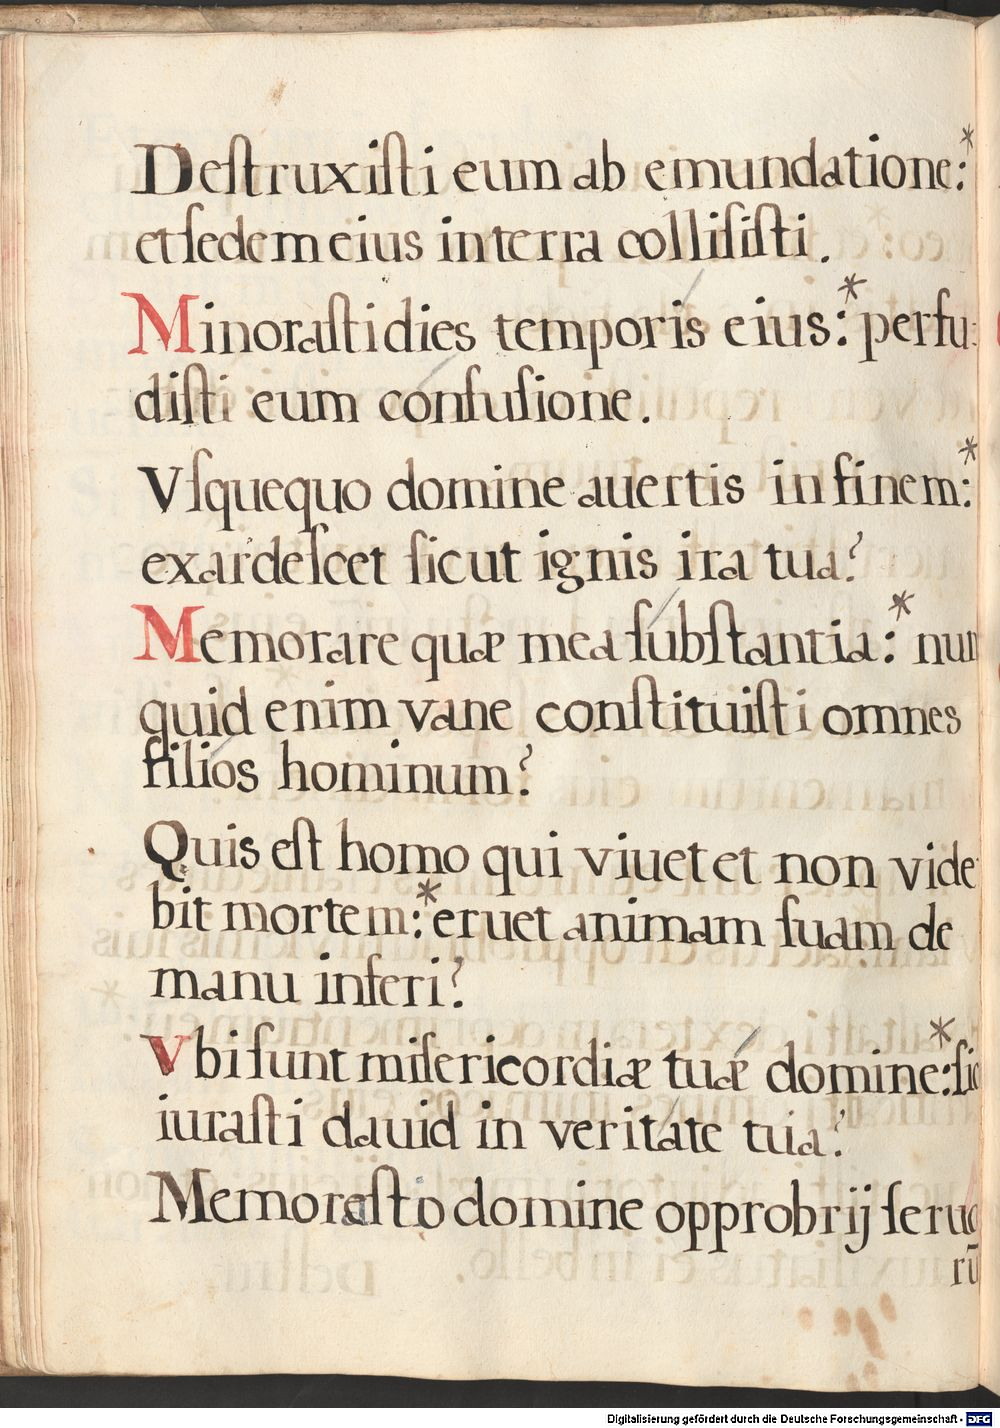 Deſtruxiſti eum ab emundatione:*
et ſedem eius in terra colliſiſti.
Minoraſti dies temporis eius:* perfu-
diſti eum confuſione.
Vſquequo domine auertis in finem:*
exardeſcet ſicut ignis ira tua?
Memorare quæ mea ſubſtantia:* nun
quid enim vane conſtituiſti omnes
filios hominum?
Quis eſt homo qui viuet et non vide
bit mortem:* eruet animam ſuam de
manu inferi?
Vbi ſunt miſericordiæ tuæ domine:* ſic
iuraſti dauid in veritate tua?
Memor eſto domine opprobrij ſeruo
rū
Digitalisierung gefördert durch die Deutsche Forschungsgemeinschaft - DFG